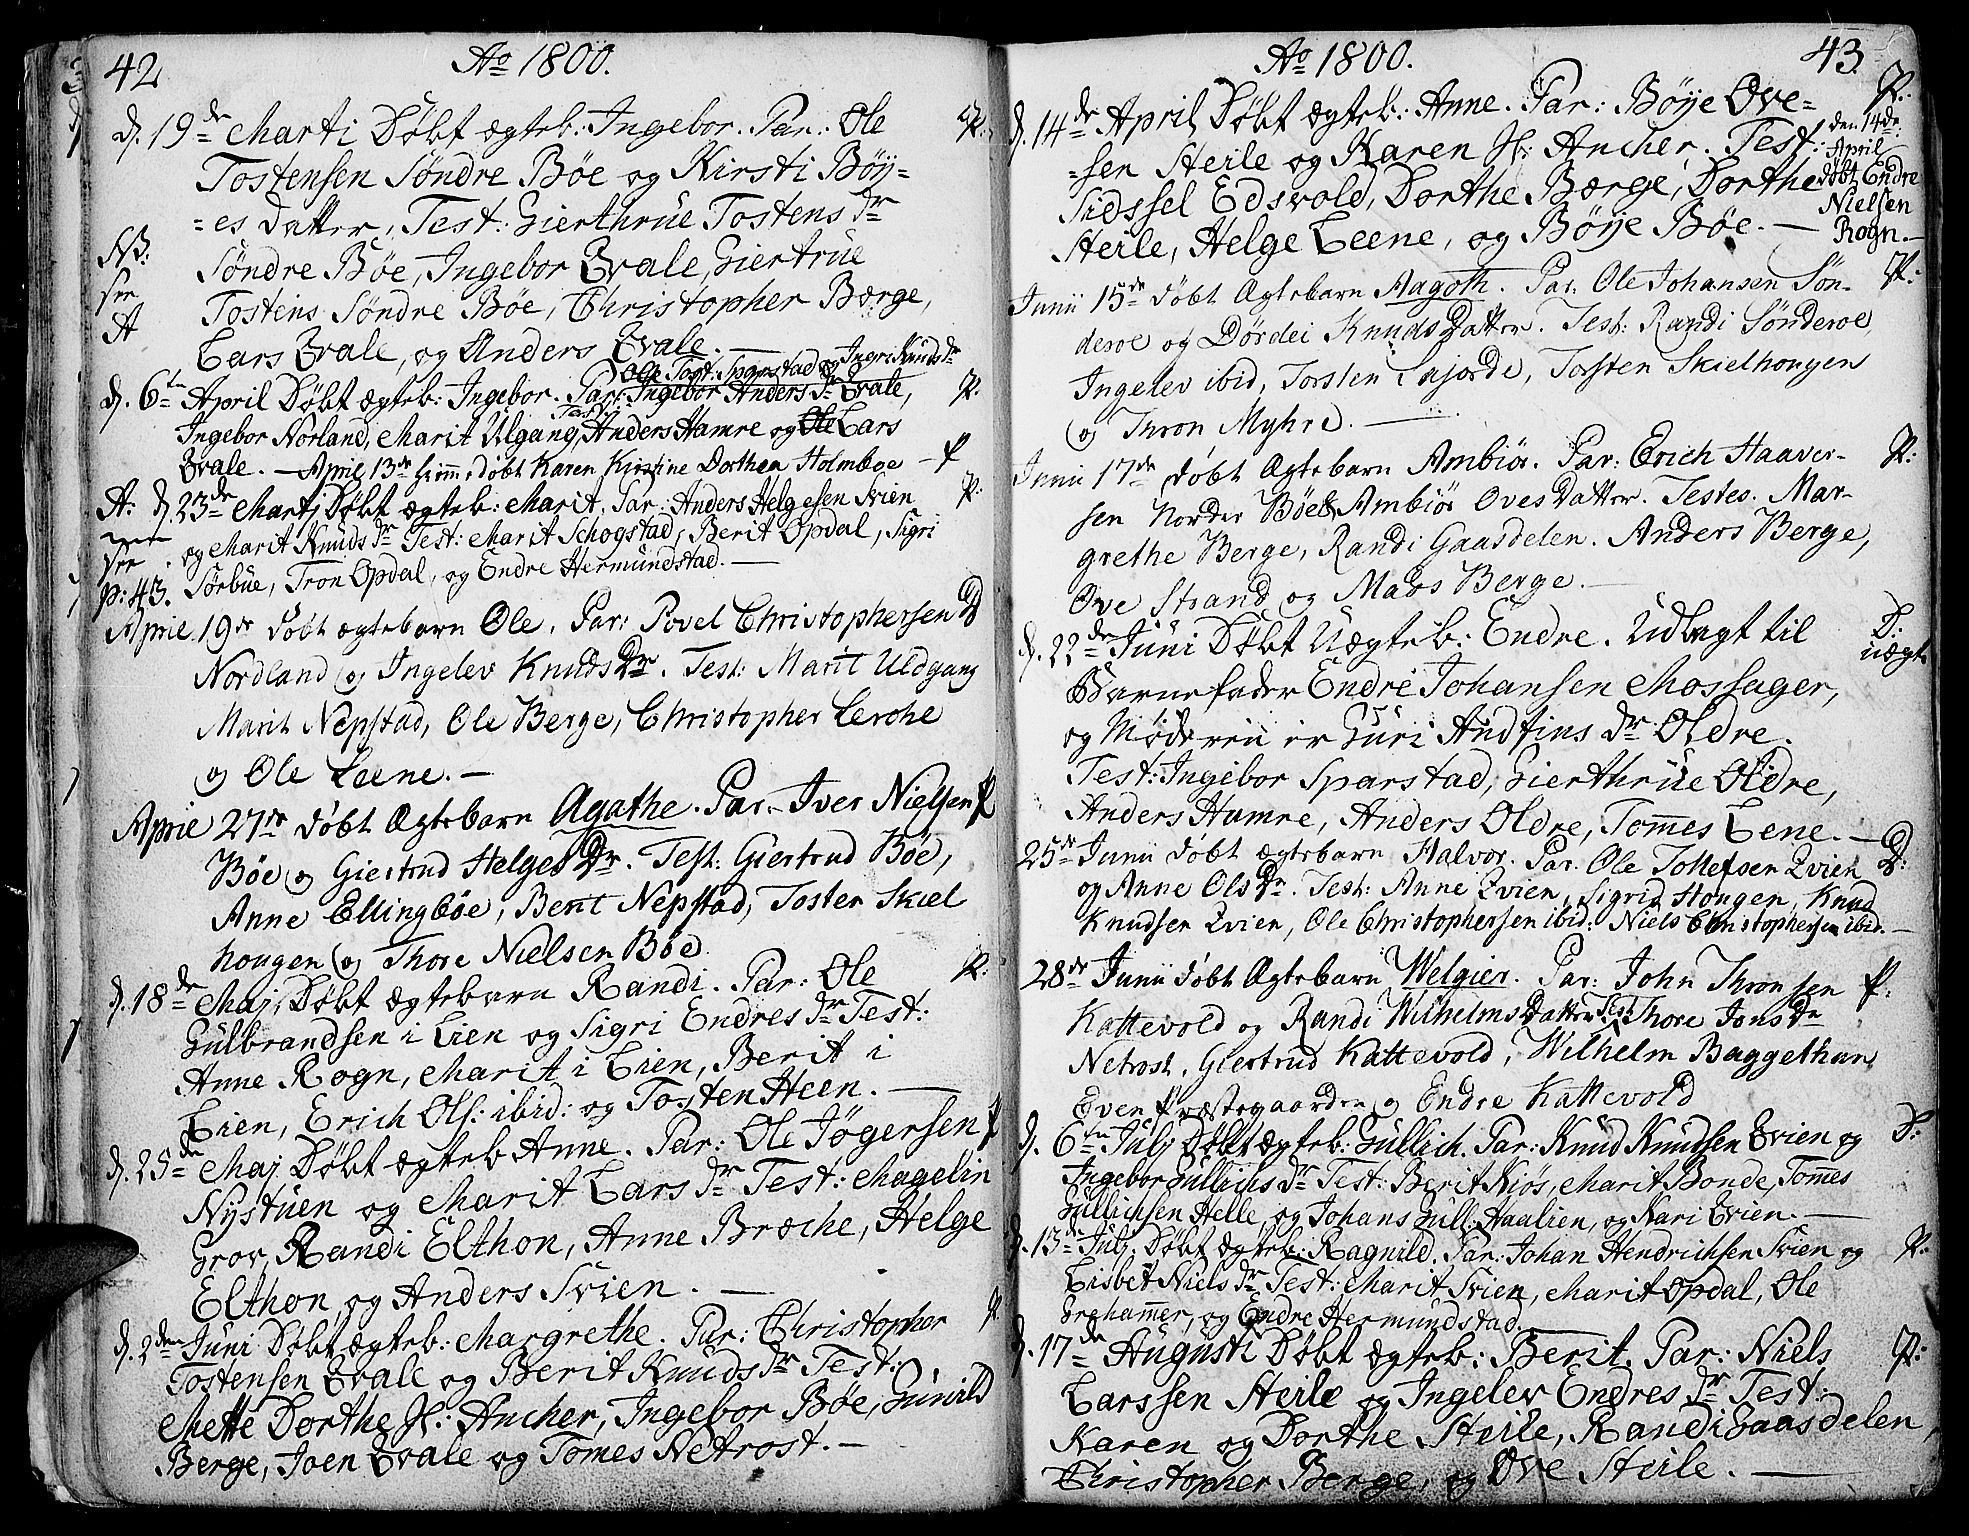 42
Ao 1800.
d. 19de Marti Døbt ægteb: Ingebor. Par: Ole
P:
Tostensen Søndre Bøe og Kirsti Böy-
=es datter, Test: Gierthrue Tostens dr
NB:
Søndre Böe, Ingebor Qvale, Giertrue
see
Tostens Søndre Böe, Christopher Berge,
A
Lars Qvale, og Anders Qvale. —
Ole Tost: Sparstad og Ingri Knuds dr
d. 6te April Døbt ægteb: Ingebor. Par: Ingebor Anders dr Qvale, P.
Ingebor Norland, Marit Ulgang, Anders Hamre og Ole Lars
Qvale. — April 13de Hjemedøbt Karen Kirstine Dorthea Holmboe — P
A: d. 23de Marti Døbt ægteb: Marit. Par: Anders Helgesen Svien P:
og Marit Knuds dr Test: Marit Schogstad, Berit Opdal, Sigri
see
Sørbue, Tron Opdal, og Endre Hermundstad. —
p: 43.
April 19de døbt ægtebarn Ole. Par: Povel Christophersen D
Nordland og Ingelev Knuds Dr. Test: Marit Uldgang
Marit Nepstad, Ole Berge, Christopher Lerche
og Ole Leene. —
April 27de døbt Ægtebarn Agathe. Par. Iver Nielsen P
Böe og Giertrud Helges Dr. Test: Giertrud Böe,
Anne Ellingbøe, Berit Nepstad, Tosten Skiel
hougen og Thore Nielsen Böe
d. 18de Maj, Døbt ægtebarn Randi. Par: Ole P:
Gulbrandsen i Lien og Sigri Endres dr Test:
Anne Rogn, Marit i Lien, Berit i
Lien, Erich Ols: ibid: og Tosten Heen. —
d. 25de Maj Døbt ægteb Anne. Par: Ole Jøgersen P
Nystuen og Marit Lars dr Test: Magelin
Grov, Randi Elthon, Anne Bræche, Helge
Elthon og Anders Svien. —
d. 2den Juni Døbt ægteb: Margrethe. Par: Christopher P.
Tostensen Qvale og Berit Knuds dr Test:
Mette Dorthe H: Ancher, Ingebor Böe, Gunild
Berge, Joen Qvale og Tomes Netrost. —
Ao 1800.
43
d. 14de April Døbt ægteb: Anne. Par: Böye Ove=
P:
=sen Steile og Karen H: Ancher. Test:
Sidssel Edsvold, Dorthe Berge, Dorthe
Steile, Helge Leene, og Böye Böe. —
den 14de
April
døbt Endre
Nielsen
Rogn. —
Junii 15de døbt Ægtebarn Aagoth. Par: Ole Johansen Søn- P:
deroe og Dørdei Knuds Datter. Test: Randi Sønderoe,
Ingelev ibid, Torsten Lajorde, Torsten Skielhougen
og Thron Myhre. —
Junii 17de døbt Ægtebarn Ambiør. Par: Erich Haaver- P:
sen Norder Böe & Ambiör Oves Datter. Testes. Mar-
grethe Berge, Randi Gaasdelen. Anders Berge,
Ove Strand og Mads Berge. —
d. 22de Juni Døbt Uægteb: Endre. Udlagt til D:
uægt
Barnefader Endre Johansen Mossager,
og Moderen er Guri Andfins dr Oldre.
Test: Ingebor Sparstad, Gierthrue Oldre,
Anders Hamre, Anders Oldre, Tomes Lene. —
25de Junii døbt ægtebarn Halvor. Par. Ole Tollefsen Qvien D:
og Anne Ols Dr. Test: Anne Qvien, Sigrid Hougen, Knud
Knudsen Qvien, Ole Christophersen ibid: Niels Christophersen ibid. —
28de Junii døbt Ægtebarn Welgier. Par: John Thronsen P:
Kattevold og Randi Wilhelms Datter Test: Thore Jons Dr
Netrost, Giertrud Kattevold, Wilhelm Baggethun,
Even Præstegaarden og Endre Kattevold
d. 6te Julj Døbt ægteb: Gullich. Par: Knud Knudsen Qvien og D:
Ingebor Gullichs dr Test: Berit Kiös, Marit Bonde, Tomes
Gullichsen Helle og Johans Gull: Haalien, og Kari Qvien. —
d. 13de Julj Døbt ægteb: Ragnild. Par: Johan Hendrichsen Svien og P:
Lisbet Niels dr Test: Marit Svien, Marit Opdal, Ole
Grehammer, og Endre Hermundstad. —
d. 17de Augusti Døbt ægteb: Berit. Par: Niels P:
Larssen Steile og Ingelev Endres dr Test:
Karen og Dorthe Steile, Randi Gaasdelen,
Christopher Berge, og Ove Steile. —